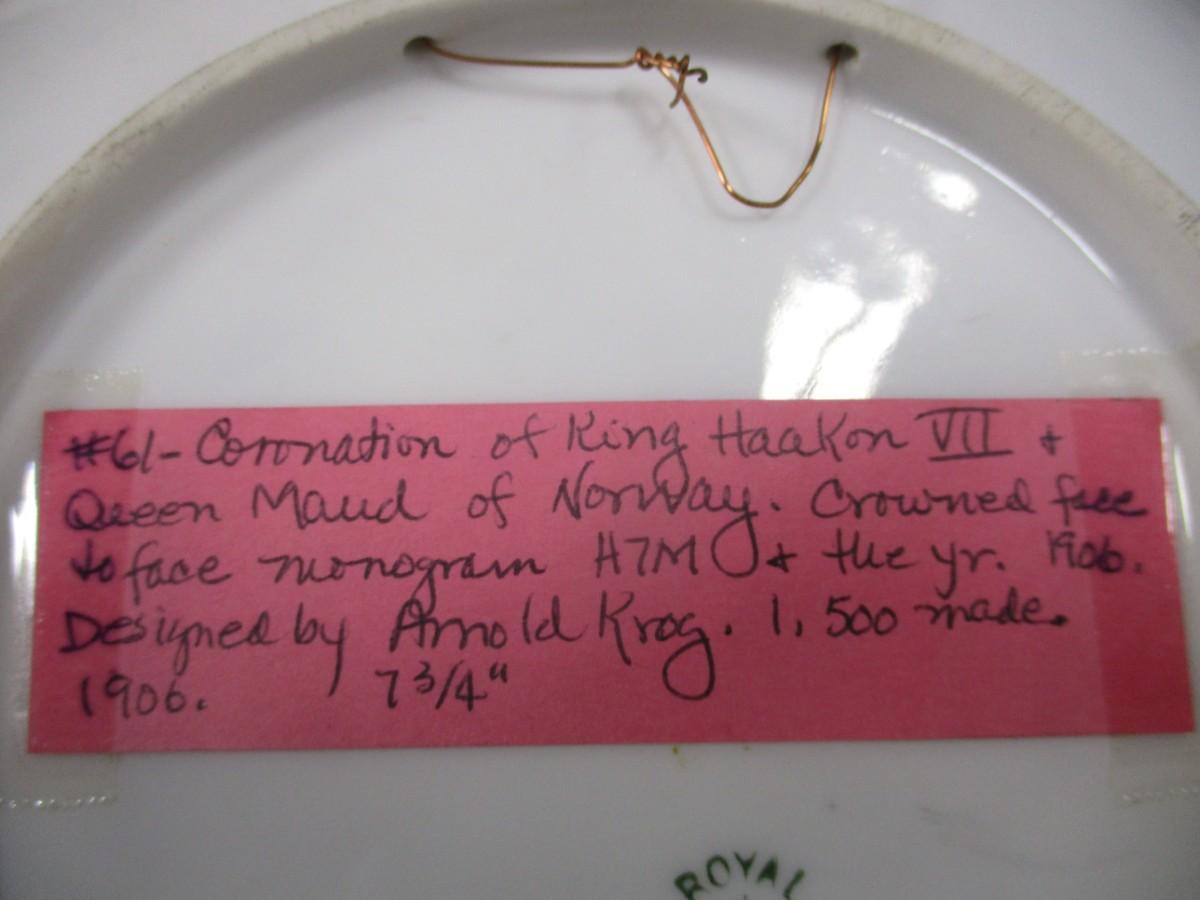 #61- Coronation of King Haakon VII +
Queen Maud of Norway. Crowned face
to face monogram H7M + the yr. 1906.
Designed by Arnold Krog. 1,500 made.
1906. 7 3/4"
ROYAL